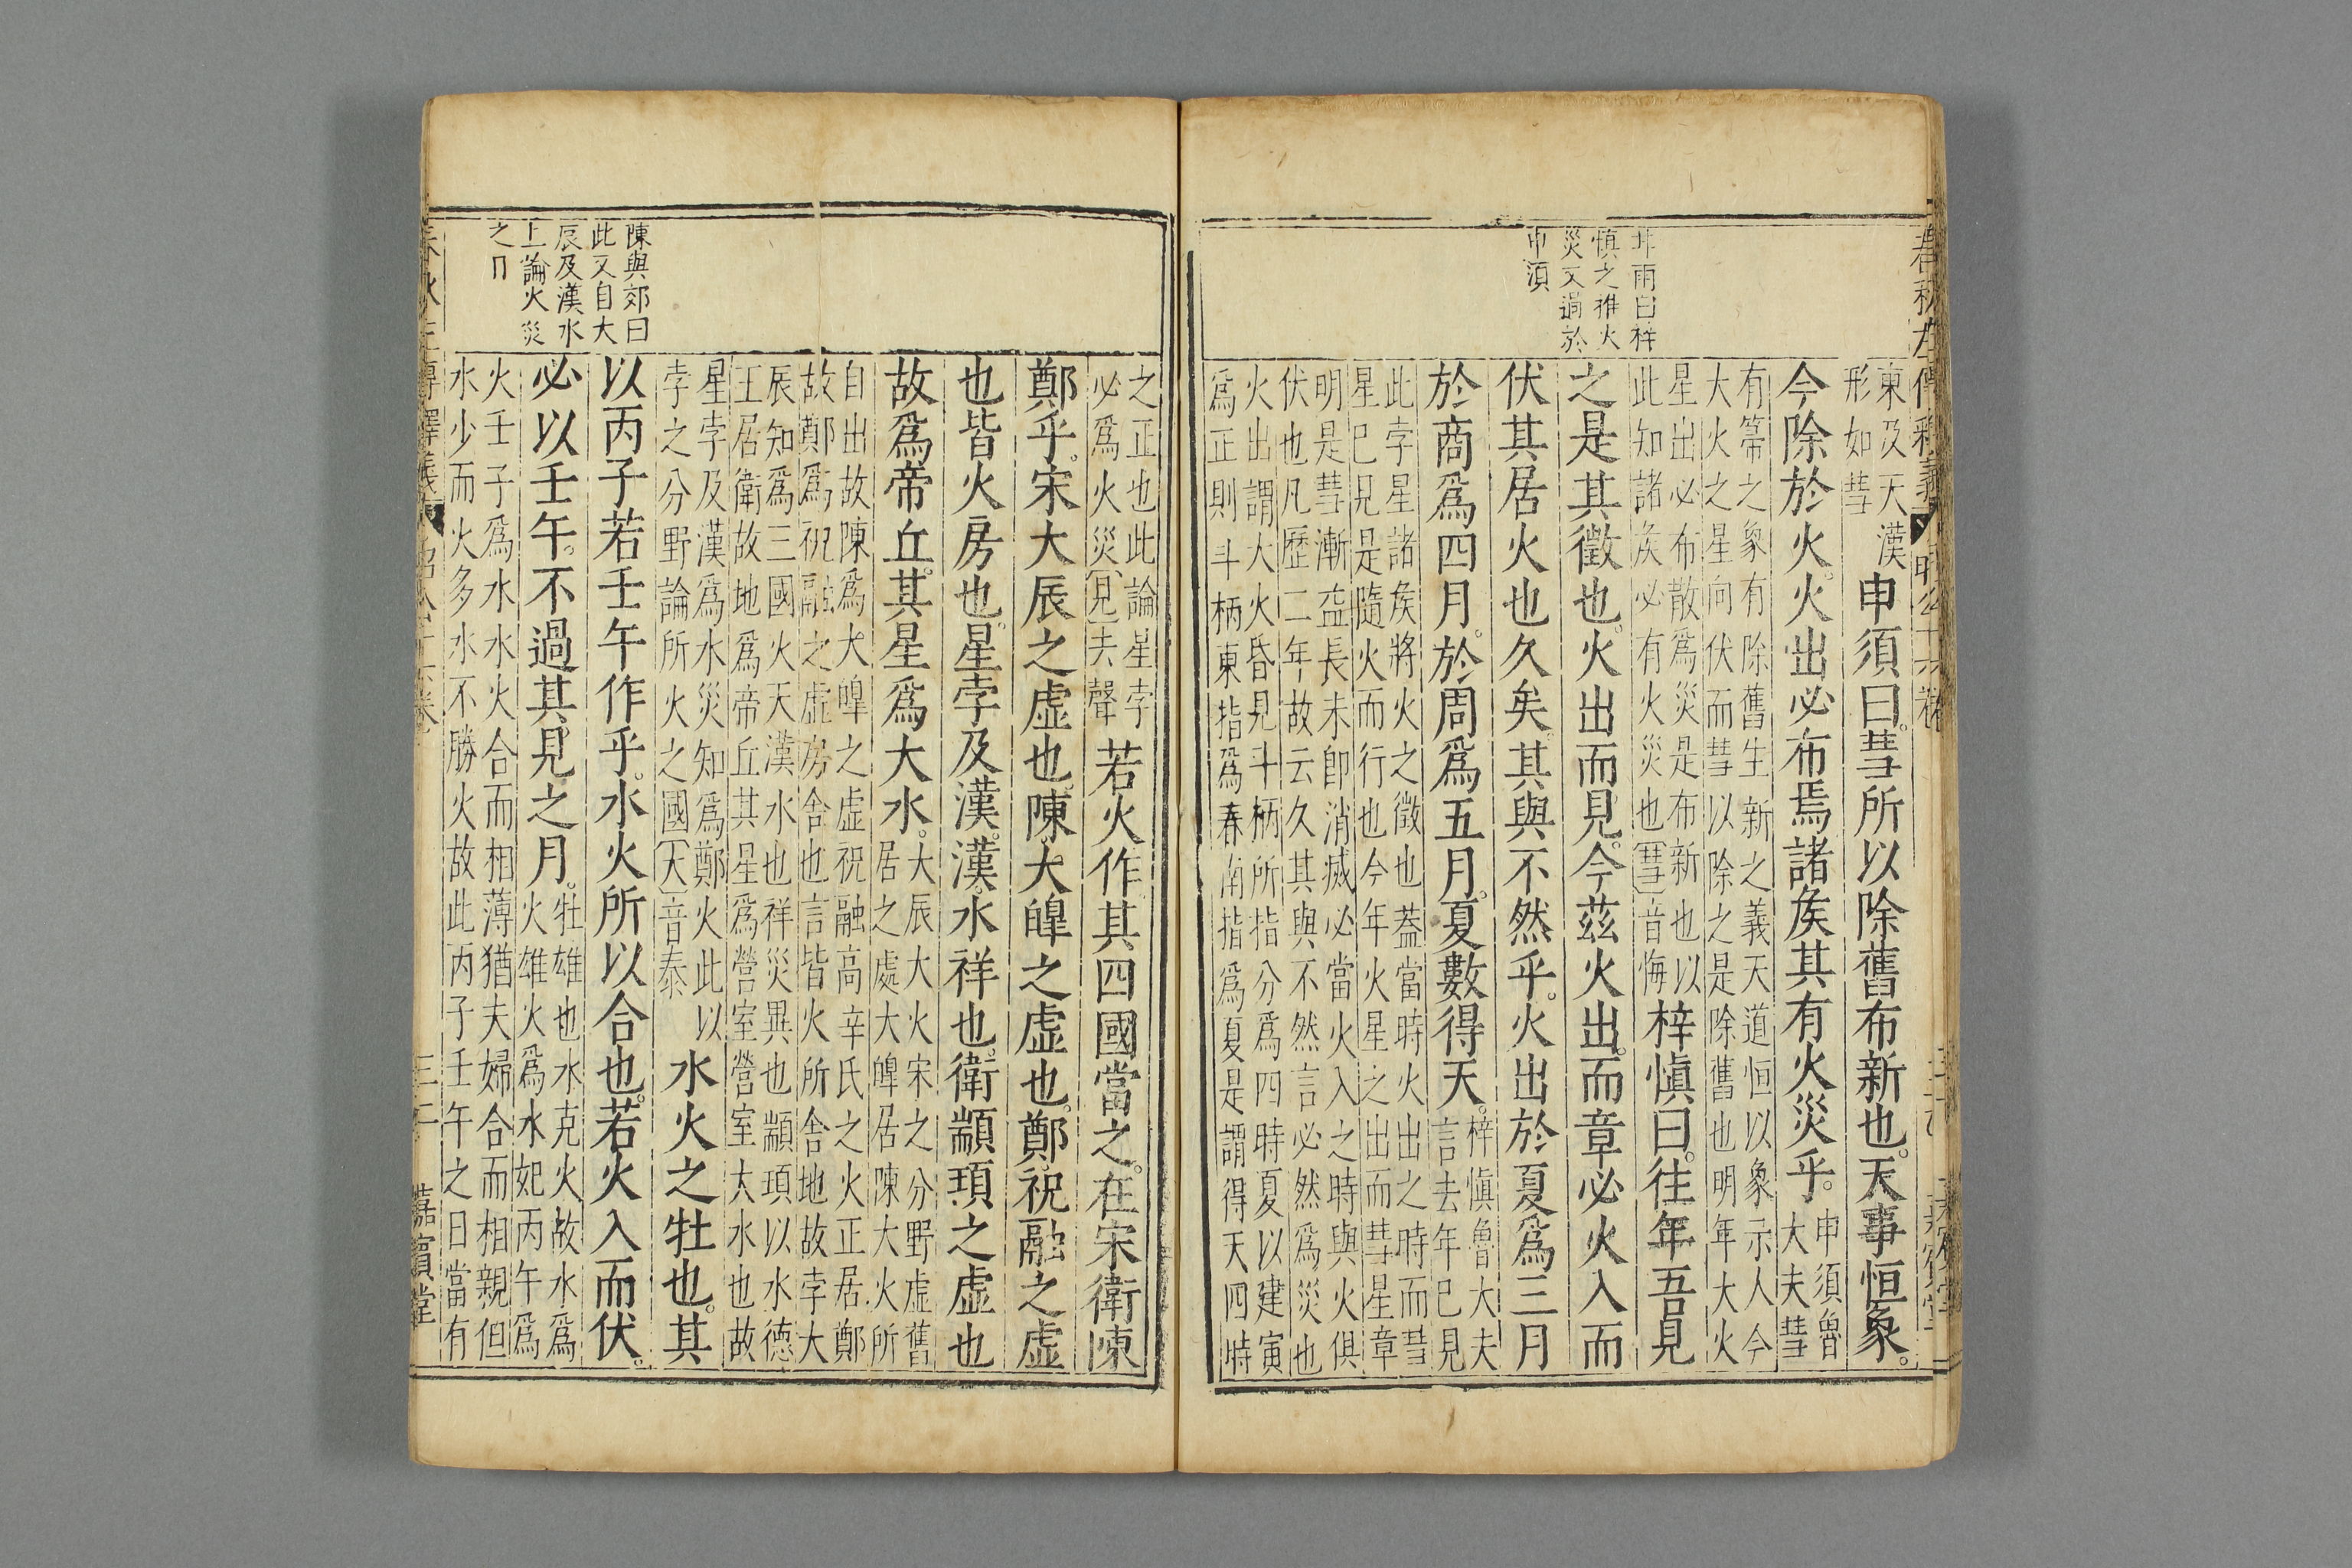 卝雨曰梓
慎之推火
災又過於
申湏
東及天漢
形如彗
申須曰彗所以除舊布新也。天事恒象。
今除於火。火出必布焉諸矦其有火災乎。
申須魯
大夫彗
有箒之象有除舊生新之義天道恒以象示人今
大火之星向伏而彗以除之是除舊也明年大火
星出必布散爲災是布新也以
此知諸矦必有火災也〔彗〕音悔
梓慎曰。往年吾見
之是其徵也。火出而見。今茲火出。而章必火入而
伏其居火也久矣。其與不然乎。火出於夏爲三月
於商爲四月。於周爲五月。夏數得天。
梓慎魯大夫
言去年巳見
此孛星諸矦將火之徵也葢當時火出之時而彗
星巳見是隨火而行也今年火星之出而彗星章
明是彗漸益長未卽消滅必當火入之時與火俱
伏也凡歷二年故云久其與不然言必然爲災也
火出謂大火昏見斗柄所指分爲四時夏以建寅
爲正則斗柄東指爲春南指爲夏是謂得天四時
之正也此論星孛
必爲火災〔見〕去聲
若火作其四國當之。在宋衛陳
鄭乎。宋大辰之虛也。陳大皥之虛也。鄭祝融之虛
也皆火房也。星孛及漢。漢水祥也。衛顓頊之虛也
故爲帝丘。其星爲大水。
大辰大火宋之分野虛舊
居之處大皥居陳大火所
自出故陳爲大皥之虛祝融高辛氏之火正居鄭
故鄭爲祝融之虛房舍也言皆火所舍地故孛大
辰知爲三國火天漢水也祥災異也顓頊以水德
王居衛故地爲帝丘其星爲營室營室大水也故
星孛及漢爲水災知爲鄭火此以
孛之分野論所火之國〔大〕音泰
水火之牡也。其
以丙子若壬午作乎。水火所以合也。若火入而伏。
必以壬午。不過其見之月。
牡雄也水克火故水爲
火雄火爲水妃丙午爲
火壬子爲水水火合而相薄猶夫婦合而相親但
水少而火多水不勝火故此丙子壬午之日當有
陳與郊曰
此又自大
辰及漢水
上論火災
之